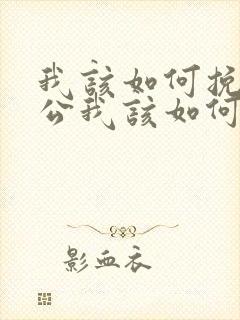 我該如何挽
公我該如何
影血衣